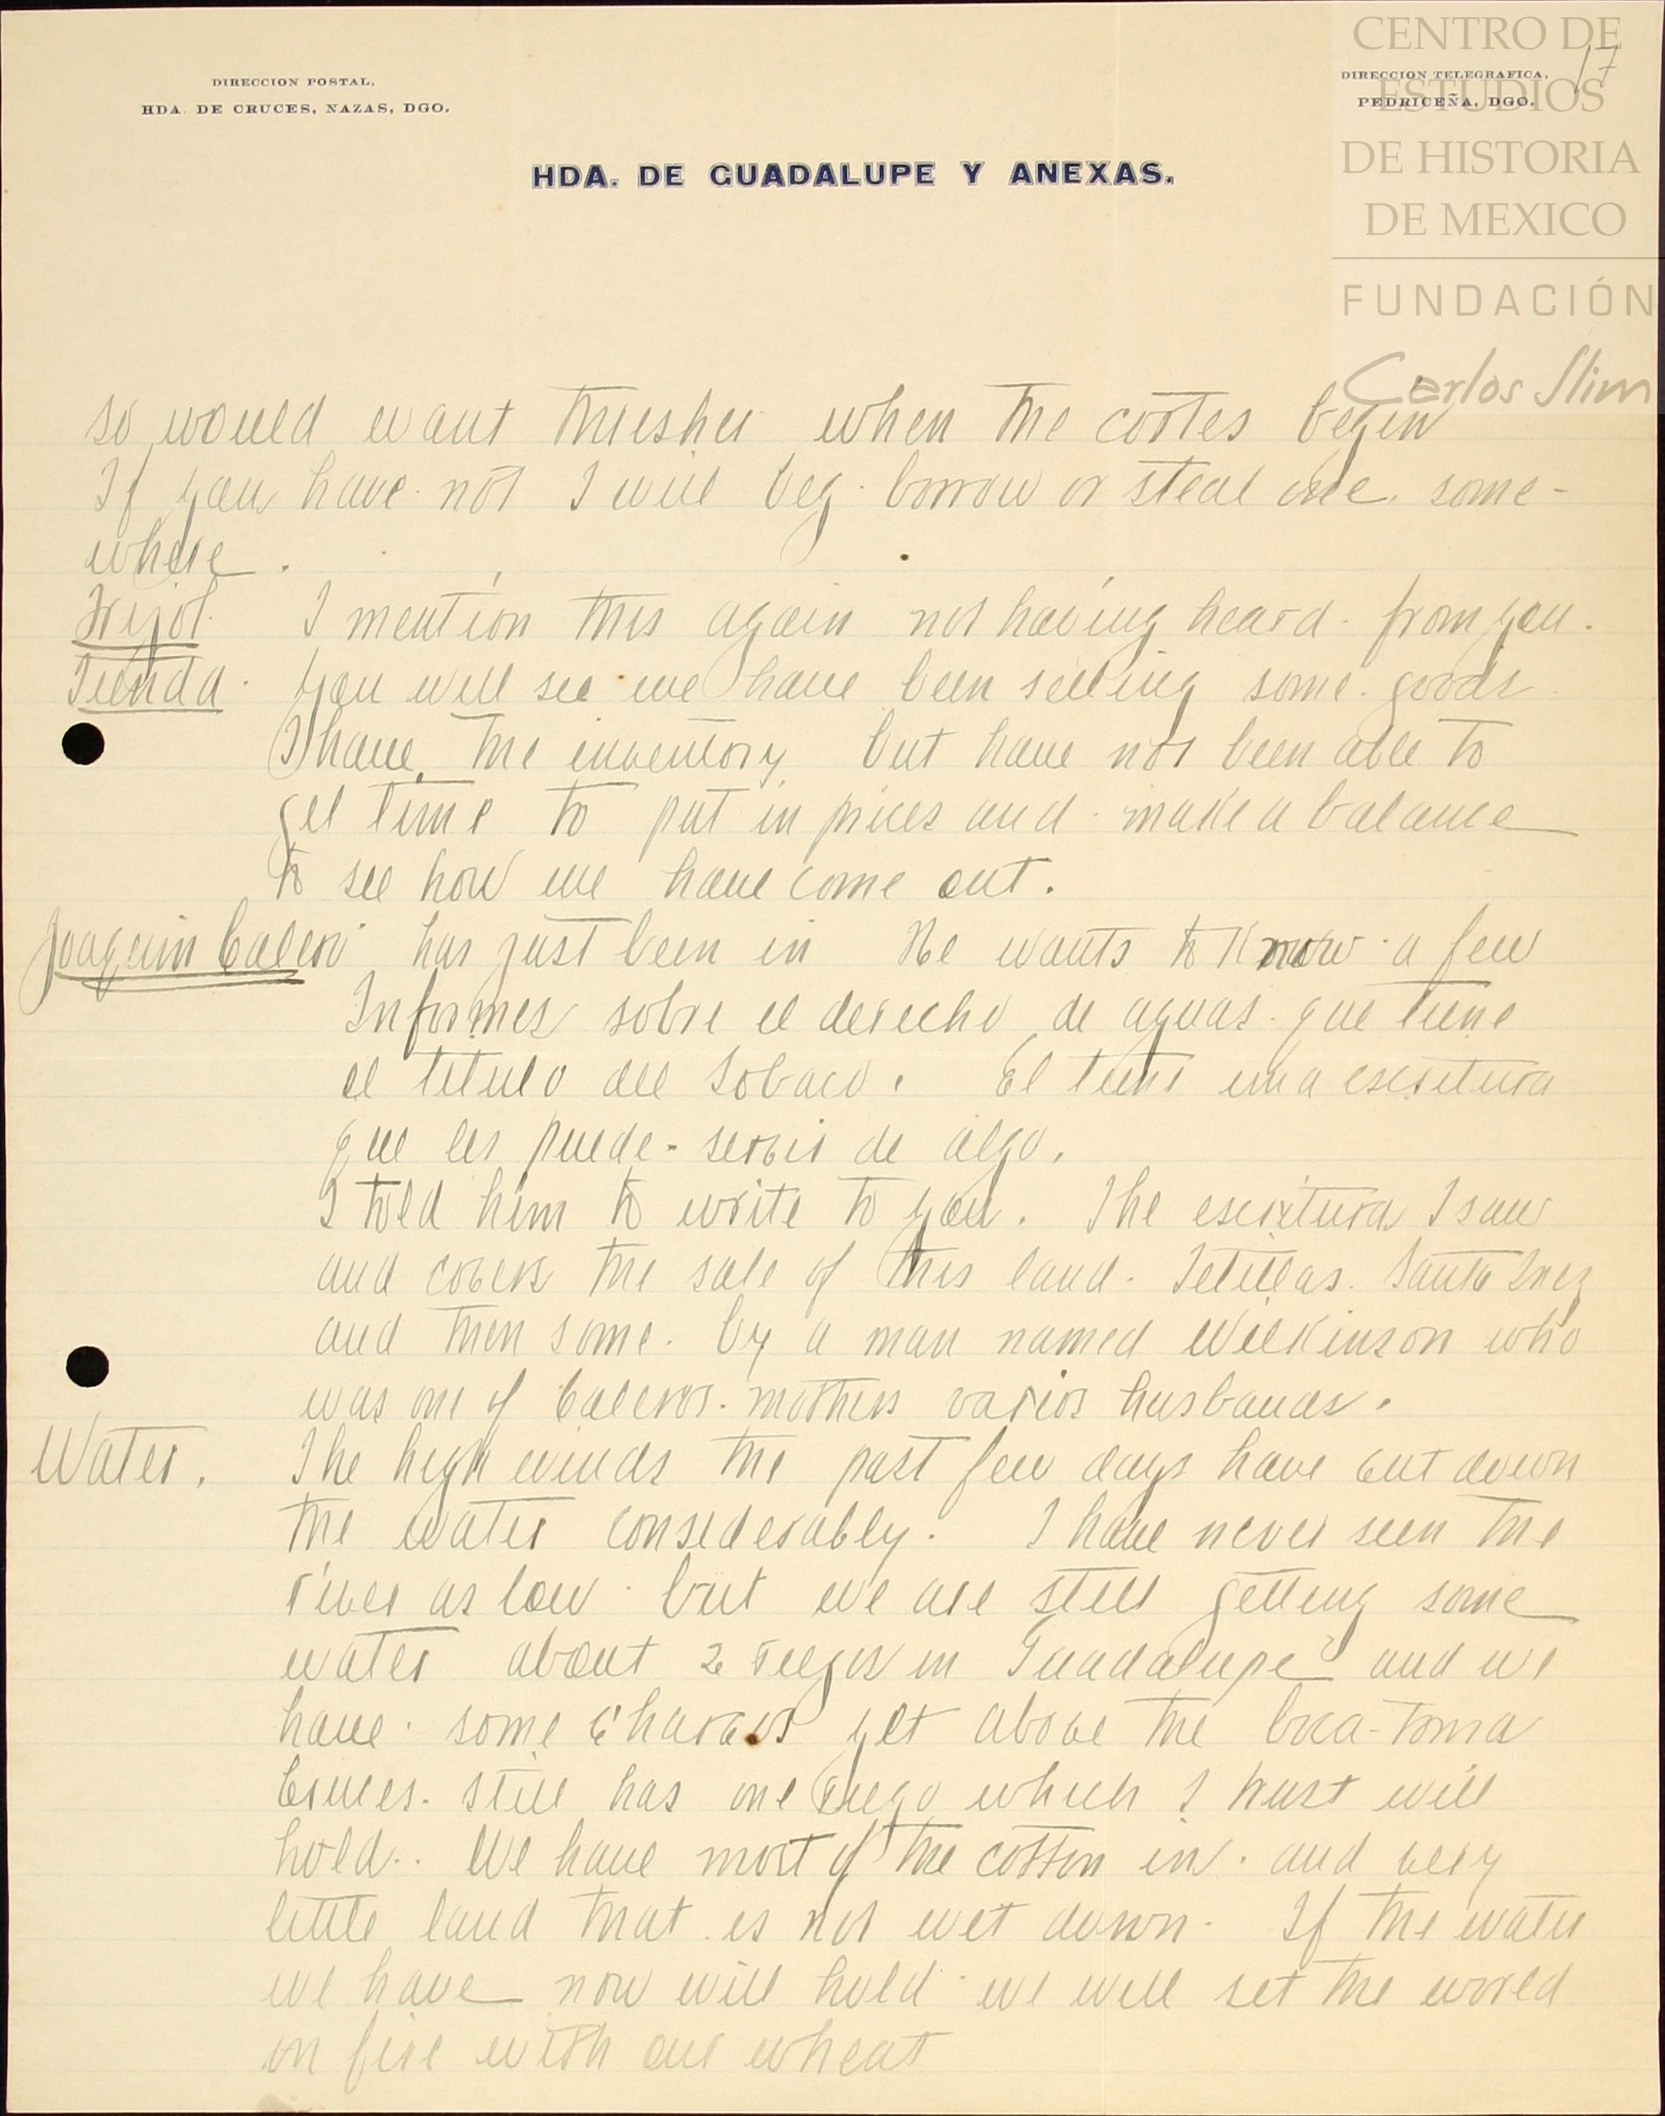 CENTRO DE
ESTUDIOS
DE HISTORIA
DE MEXICO
FUNDACIÓN
Carlos Slim
17
DIRECCION POSTAL,
HDA. DE CRUCES, NAZAS, DGO.
DIRECCION TELEGRAFICA,
PEDRICEÑA, DGO.
HDA. DE GUADALUPE Y ANEXAS.
so would want thresher when the cortes begin
If you have not I will beg borrow or steal one some-
where.
Frijol. I mention this again not having heard from you.
Tienda. You will see we have been selling some goods
I have the inventory but have not been able to
get time to put in prices and make a balance
to see how we have come out.
Joaquin Calero has just been in He wants to know a few
Informes sobre el derecho de aguas que tiene
el titulo del Sobaco. El tiene una escritura
que les puede servir de algo.
I told him to write to you. The escritura I saw
and covers the sale of this land. Tetillas. Santa Inez
and then some. by a man named Wilkinson who
was one of Caleros mothers varios husbands.
Water. The high winds the past few days have cut down
the water considerably. I have never seen the
river as low but we are still getting some
water about 2 riegos in Guadalupe and we
have some charcos yet above the boca-toma
Cruces still has one riego which I trust will
hold. We have most of the cotton in and very
little land that is not wet down. If the water
we have now will hold we will set the world
on fire with our wheat